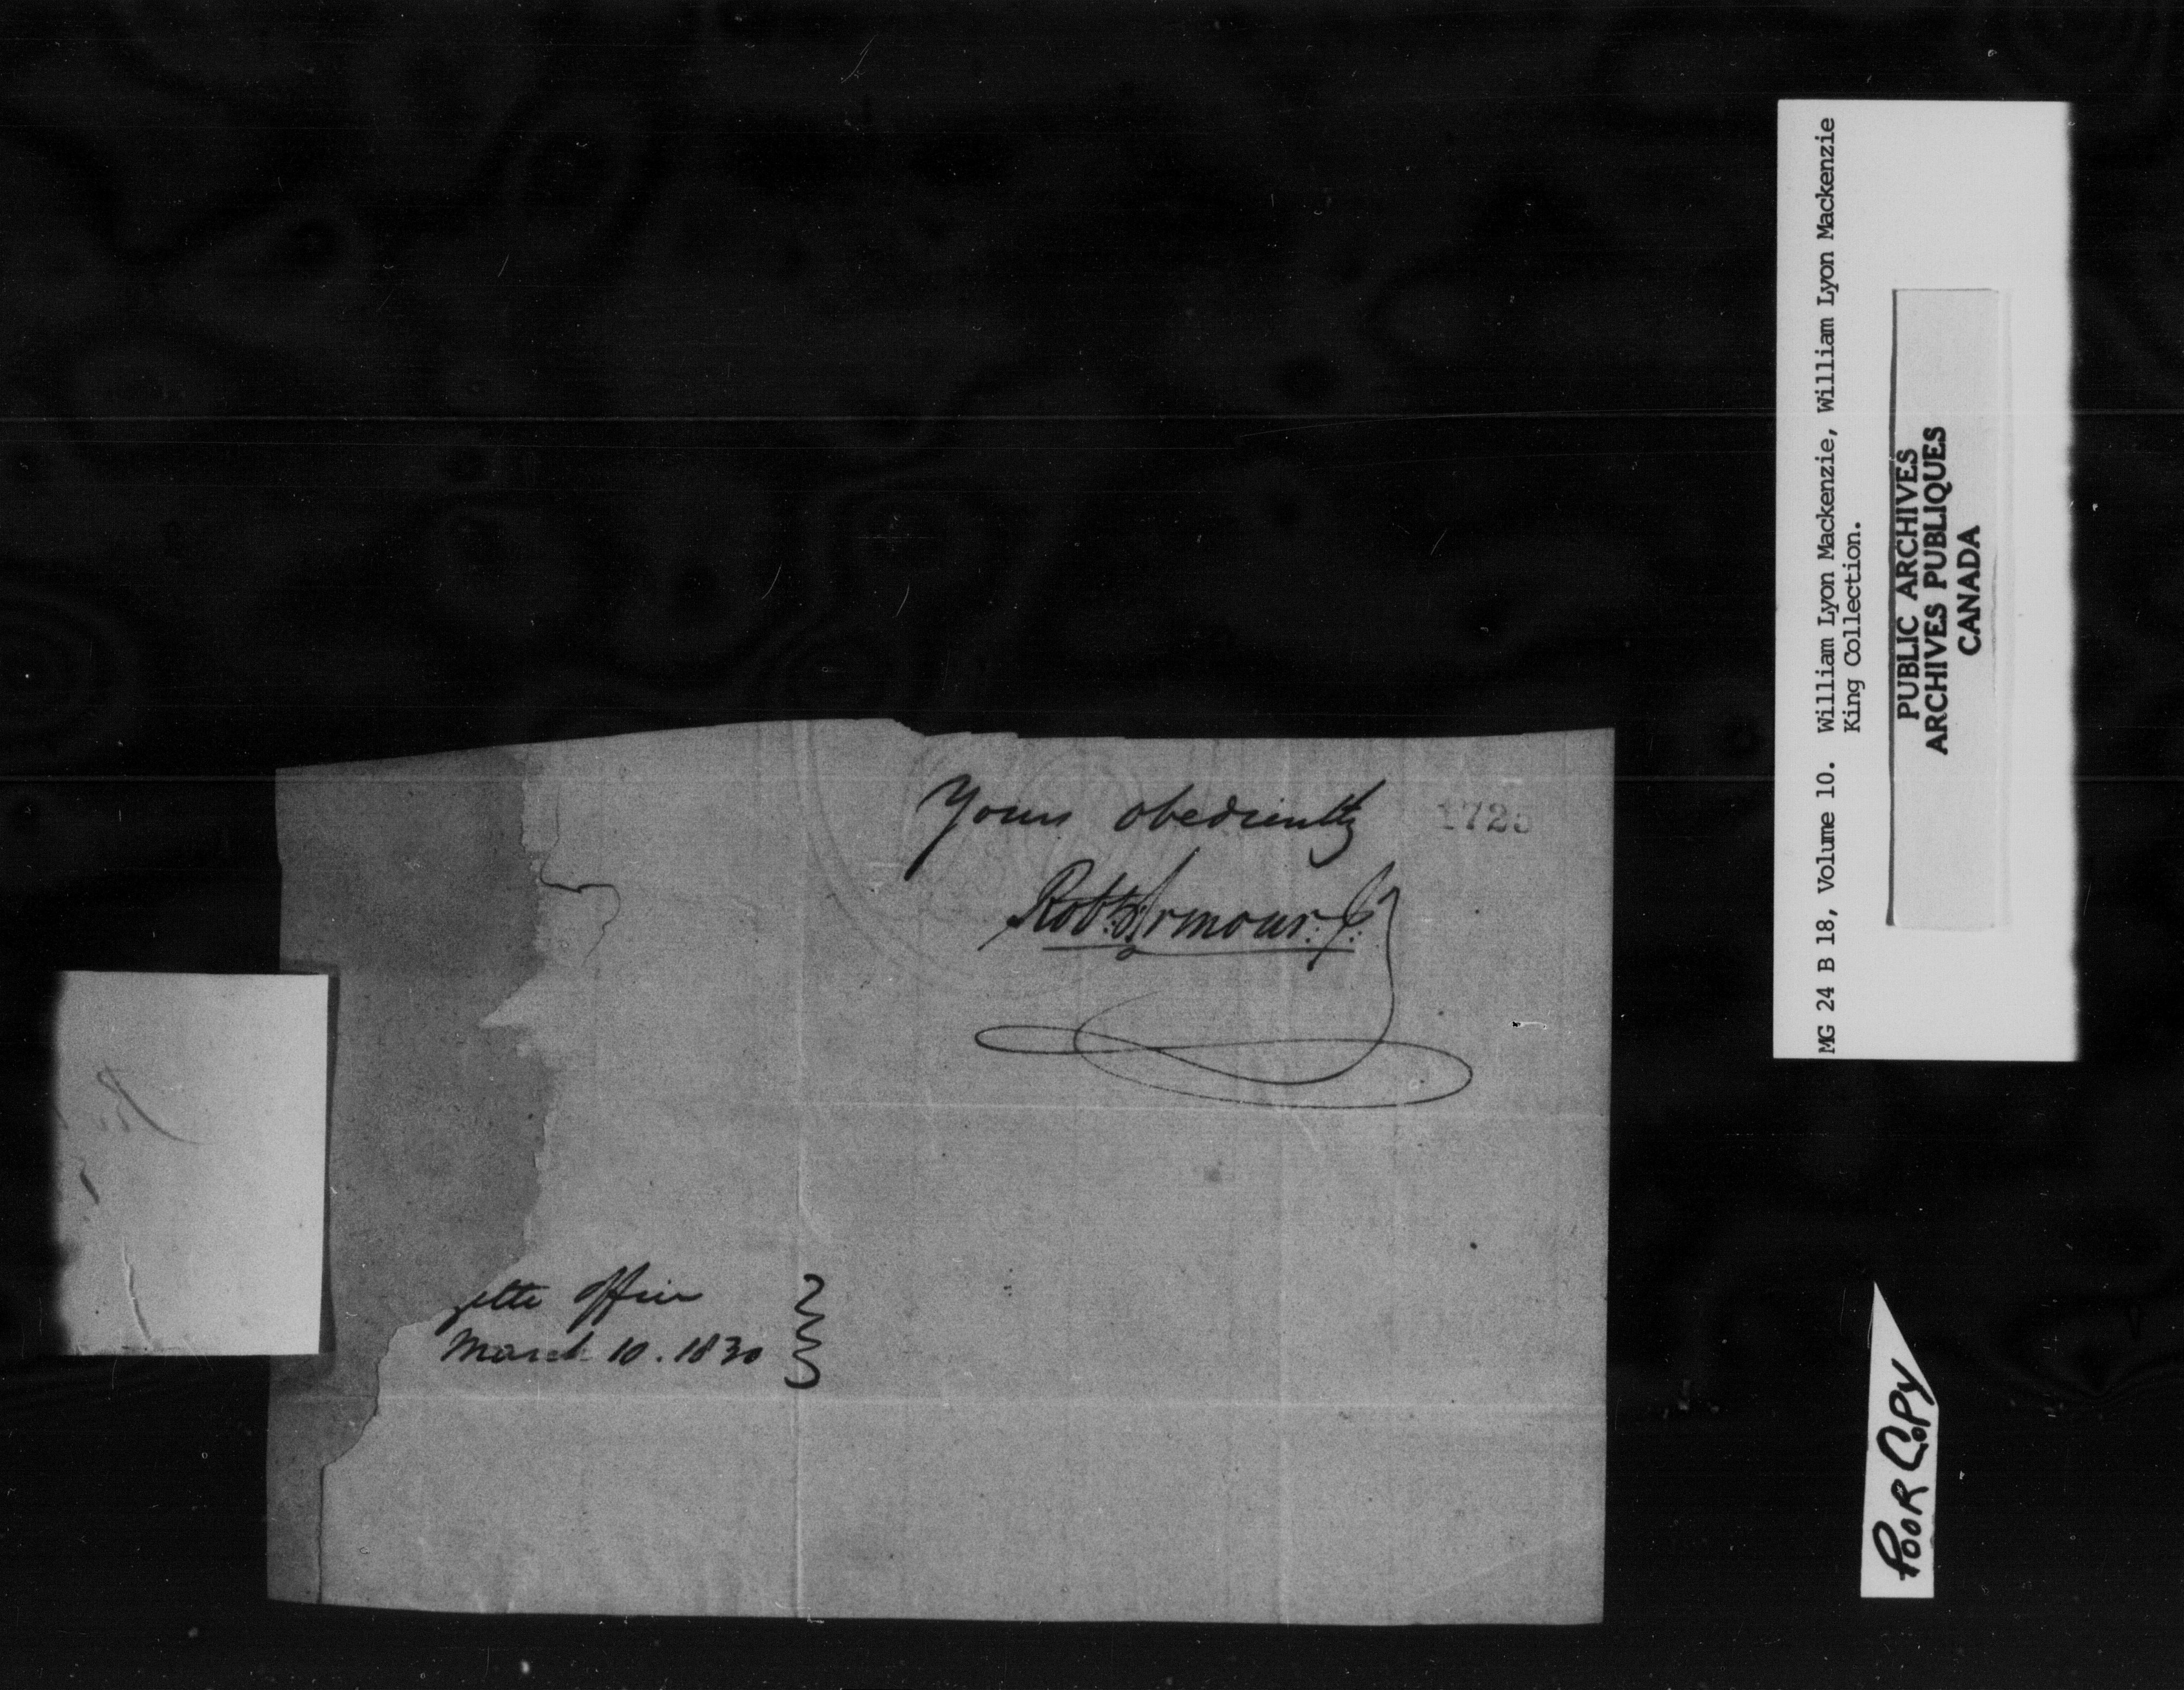 Yours obediently
1725
Robt. Armour. Jr.
zette Office
March 10. 1830
MG 24 B 18, Volume 10. William Lyon Mackenzie, William Lyon Mackenzie
King Collection.
PUBLIC ARCHIVES
ARCHIVES PUBLIQUES
CANADA
POOR COPY